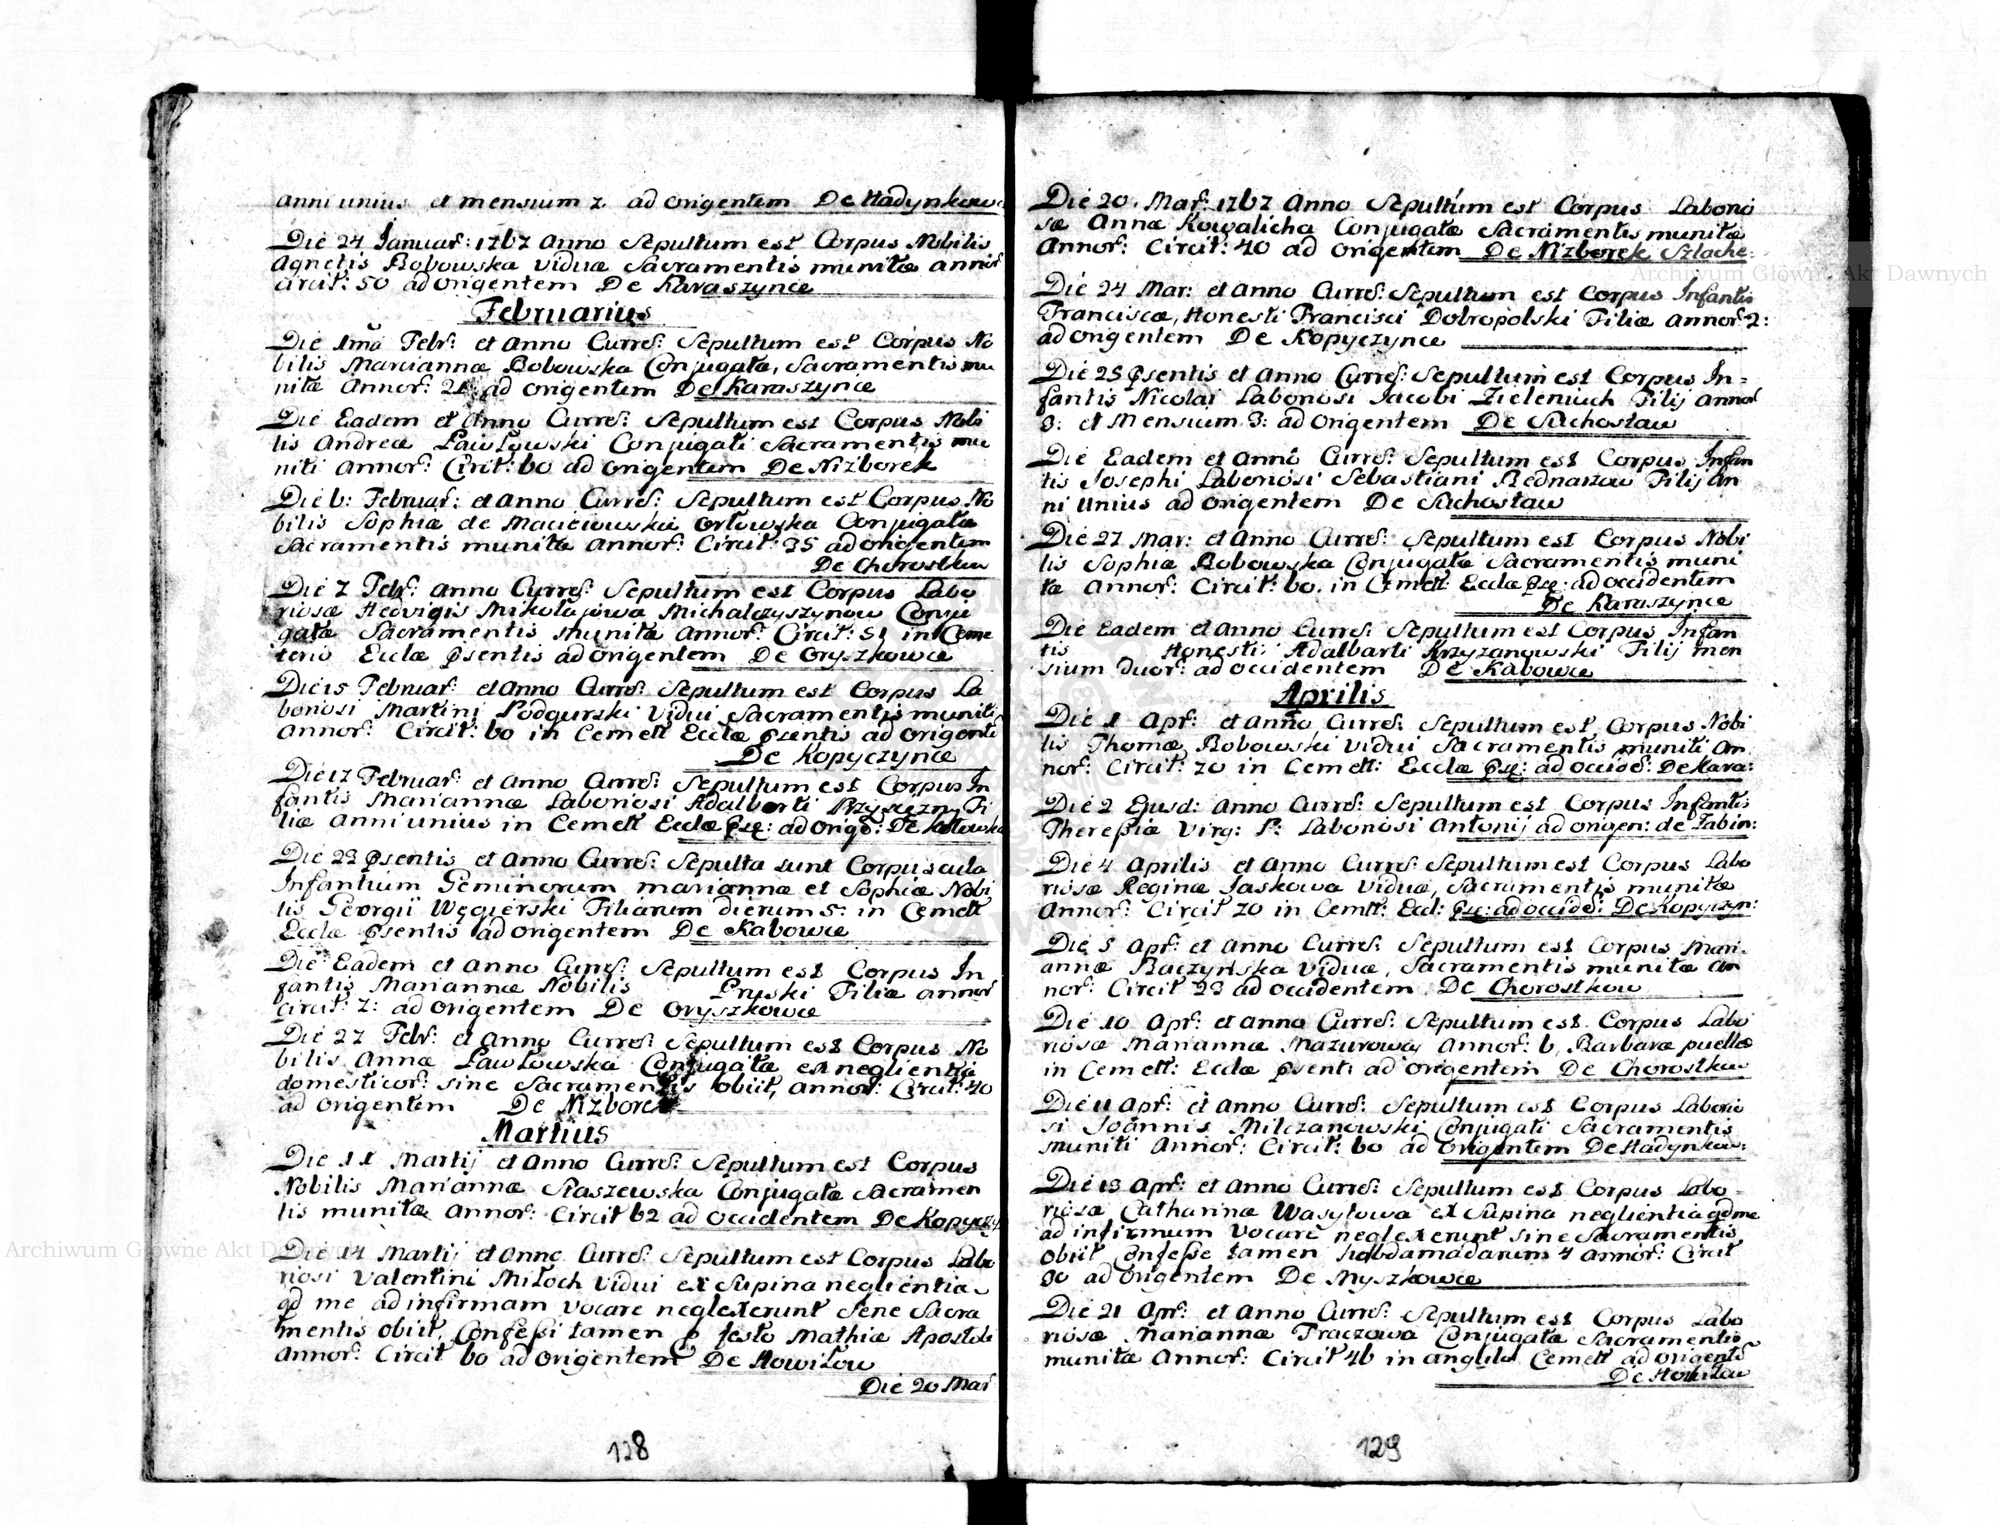 anni unius et mensium 2 ad origentem De Hadynkow
Die 24 Januar: 1767 Anno Sepultum est Corpus Nobilis
Agnetis Bobowska Viduæ Sacramentis munitæ annor
circit: 50 ad origentem De Karaszynce
Februarius
Die 1ma Febr: et Anno Curre: Sepultum est Corpus No
bilis Mariannæ Bobowska Conjugatæ, Sacramentis mu
nitæ Annor: ad origentem De Karaszynce
Die Eadem et Anno Curre: Sepultum est Corpus Nobi
lis Andreæ Pawłowski Conjugati Sacramentis mu
niti Annor: Circit: 60 ad origentem De Niżborek
Die 6: Februar: et Anno Curre: Sepultum est Corpus No
bilis Sophiæ de Maciciowskie Orłowska Conjugatæ
Sacramentis munitæ Annor: Circit: 35 ad origentem
De Chorostkow
Die 7 Febr: Anno Curre: Sepultum est Corpus Labo
riosæ Hedvigis Mikołajowa Michalczyszynow Conju
gatæ Sacramentis munitæ Annor: Circit: 51 in Ceme
terio Eclæ psentis ad origentem De Oryszkowce
Die 15 Februar: et Anno Curre: Sepultum est Corpus La
boriosi Martini Podgurski Vidui Sacramentis muniti
Annor: Circit: 60 in Cemett Eclæ psentis ad origente
De Kopyczynce
Die 17 Februar: et Anno Curre: Sepultum est Corpus In
fantis Mariannæ Laboriosi Adalberti Fi
liæ Anni unius in Cemett Eclæ pse: ad orige: De
Die 23 psentis et Anno Curre: Sepulta sunt Corpuscula
Infantium Geminorum Mariannæ et Sophiæ Nobi
lis Georgii Węgierski Filiarum dierum 5: in Cemett
Eclæ psentis ad origentem De Kabowce
Die Eadem et Anno Curre: Sepultum est Corpus In
fantis Mariannæ Nobilis Pryski Filiæ annor
circit: 7: ad origentem De Oryszkowce
Die 27 Febr: et Anno Curre: Sepultum est Corpus No
bilis Annæ Pawłowska Conjugatæ ex neglientia
domesticor: sine Sacramentis obiit, annor: Circit: 40
ad origentem De Nizborek
Martius
Die 11 Martij et Anno Curre: Sepultum est Corpus
Nobilis Mariannæ Staszewska Conjugatæ Sacramen
tis munitæ Annor: Circit 62 ad occidentem De Kopyczy
Die 14 Martij et Anno Curre: Sepultum est Corpus Labo
riosi Valentini Miłoch Vidui ex Supina neglientia
qd me ad infirmam vocare neglexerunt sene Sacra
mentis obiit, Confessi tamen p festo Mathiæ Apostoli
Annor: Circit 60 ad origentem De Howiłow
Die 20 Mar
128
Die 20. Mar: 1767 Anno Sepultum est Corpus Laborio
sæ Annæ Kowalicha Conjugatæ Sacramentis munitæ
Annor: Circit: 40 ad origentem De Nizborek Szlache:
Die 24 Mar: et Anno Curre: Sepultum est Corpus Infantis
Franciscæ, Honesti Francisci Dobropolski Filiæ annor: 2:
ad origentem De Kopyczynce
Die 25 psentis et Anno Curre: Sepultum est Corpus In=
fantis Nicolai Laboriosi Jacobi Zieleniuch Filij annor
3: et Mensium 3: ad origentem De Suchostaw
Die Eadem et Anno Curre: Sepultum est Corpus Infan
tis Josephi Laboriosi Sebastiani Bednarzow Filij An
ni unius ad origentem De Suchostaw
Die 27 Mar: et Anno Curre: Sepultum est Corpus Nobi
lis Sophiæ Bobowska Conjugatæ Sacramentis muni
tæ Annor: Circit: 60. in Cemett: Eclæ pse: ad occidentem
De Karaszynce
Die Eadem et Anno Curre: Sepultum est Corpus Infan
tis Honesti: Adalbarti Krzyzanowski Filij men
sium duor: ad occidentem De Kabowce
Aprilis
Die 1 Apr: et Anno Curre: Sepultum est Corpus Nobi
lis Thomæ Bobowski Vidui Sacramentis muniti An
nor: Circit: 70 in Cemett: Eclæ pse: ad occide: De Kara:
Die 2 Ejusd: Anno Curre: Sepultum est Corpus Infantis
Theresiæ Virg: F: Laboriosi Antonij ad origen: de Tabin:
Die 4 Aprilis et Anno Curre: Sepultum est Corpus Labo
riosæ Reginæ Jaskowa Viduæ, Sacramentis munitæ
Annor: Circit 70 in Cemtt: Ecl: pse: ad occide: De Kopyczyn:
Die 5 Apr: et Anno Curre: Sepultum est Corpus Mari-
annæ Raczyńska Viduæ, Sacramentis munitæ an
nor: Circit 23 ad occidentem De Chorostkow
Die 10 Apr: et Anno Curre: Sepultum est Corpus Labo
riosæ Mariannæ Mazurowa Annor: 6, Barbaræ puellæ
in Cemett: Eclæ psenti ad origentem De Chorostkow
Die 11 Apr: et Anno Curre: Sepultum est Corpus Laborio
si Joannis Milczanowski Conjugati Sacramentis
muniti Annor: Circit: 60 ad origentem De Hadynkow:
Die 13 Apr: et Anno Curre: Sepultum est Corpus Labo-
riosæ Catharinæ Wasyłowa ex Supina neglientia qd me
ad infirmum vocare neglexerunt sine Sacramentis
obiit Confesse tamen hebdamadarum 4 Annor: Circit
30 ad origentem De Myszkowce
Die 21 Apr: et Anno Curre: Sepultum est Corpus Labo
riosæ Mariannæ Traczowa Conjugatæ Sacramentis
munitæ Annor: Circit 46 in Cemett ad origente
De Howiłow
129
Archiwum Główne Akt Dawnych
Archiwum Główne Akt Dawnych